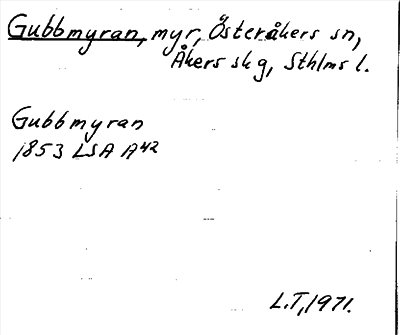 Gubbmyran, myr, Österåkers sn,
Åkers skg, Sthlms l.
Gubbmyran
1853 LSA A42
L.T, 1971.